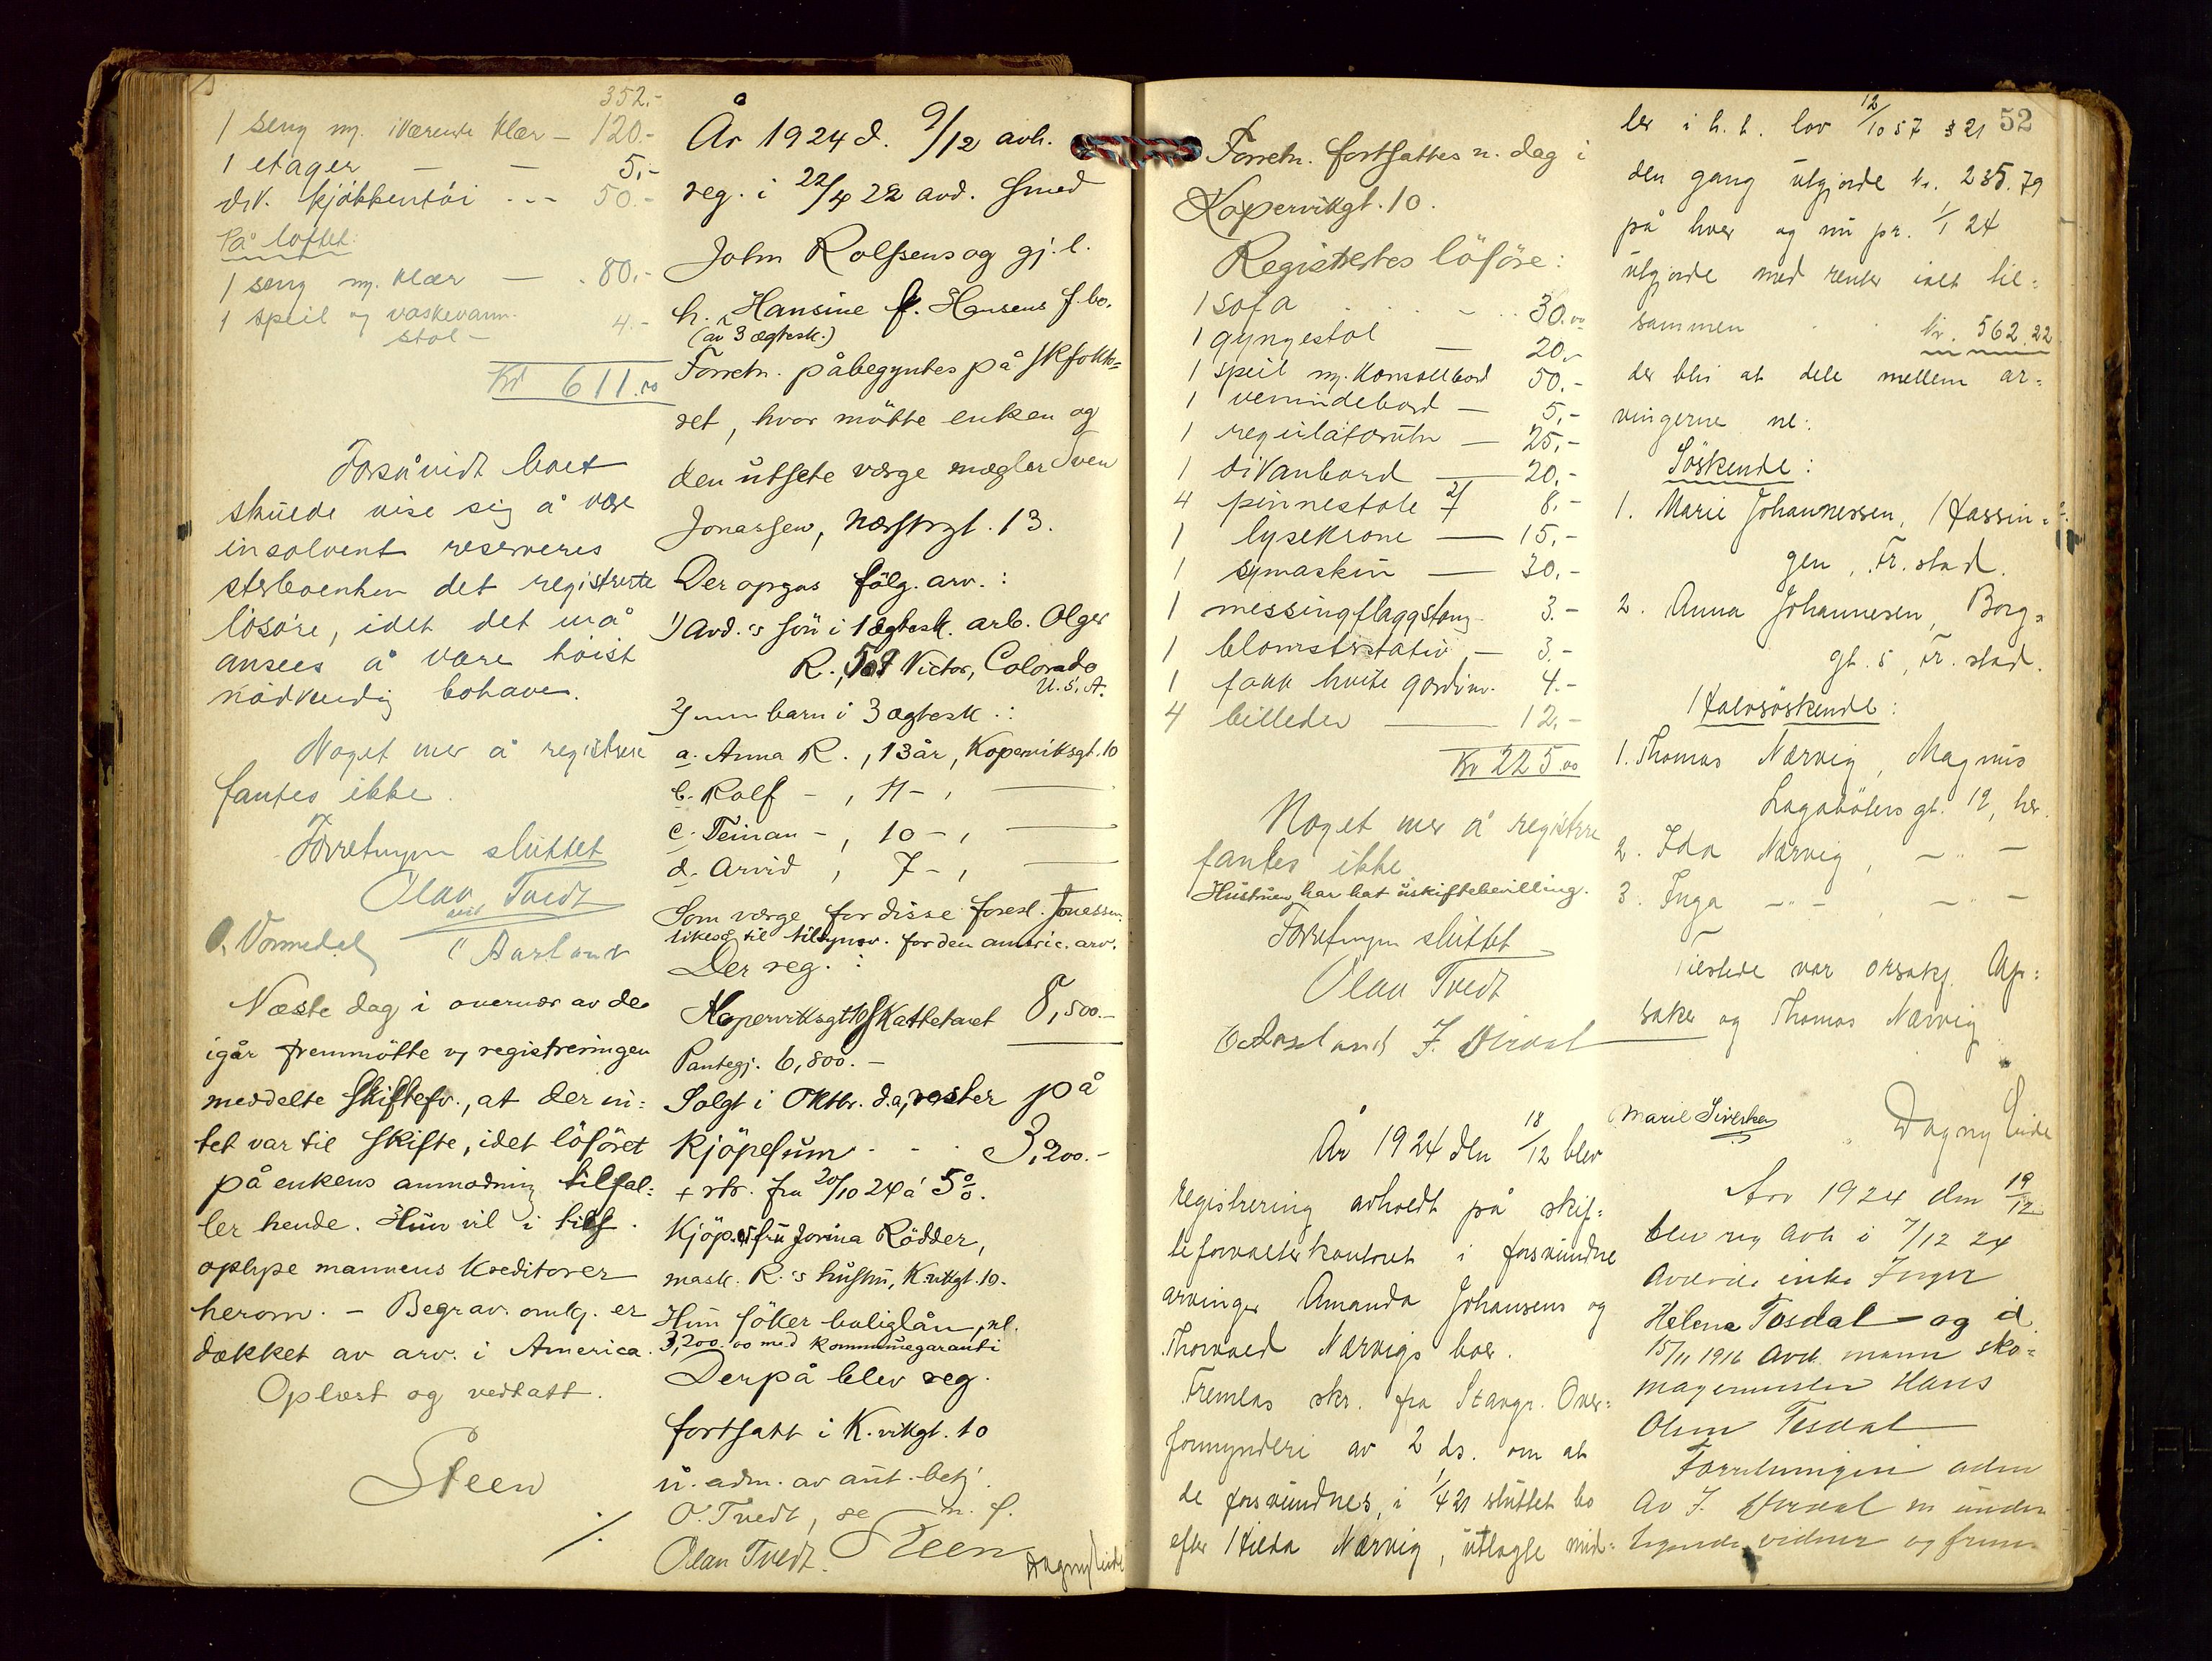 352.-
1 seng m. iværende klær - 120.-
1 etager - - 5.-
div. kjøkkentøi ... - 50.-
På loftet:
1 seng m. klær - 80.-
1 speil og vaskevann-
stol - 4.-
Kr 611.00
Forsåvidt boet
skulde vise sig å være
insolvent reserveres
sterboenken det registrerte
løsøre, idet det må
ansees å være høist
nødvendig bohave.
Noget mer å registrere
fantes ikke.
Forretningen sluttet
Olav Tvedt
O. Vormedal Aarland
Næste dag i overvær av de
igår fremmøtte v/ registreringen
meddelte skiftefv., at der in-
tet var til skifte, idet løsøret
på enkens anmodning tilfal-
ler hende. Hun vil i tilf.
oplyse mannens kreditorer
herom. - Begrav. omk. er
dækket av arv. i America.
Oplæst og vedtatt.
Steen
År 1924 d. 9/12 avh.
reg. i 22/4 22 avd. smed
John Rolfsens og gj.l.
h. Hansine f. Hansens f.bo.
(av 3 ægtesk.)
Forretn. påbegyntes på skfokto-
ret, hvor møtte enken og
den utsete værge mægler Sven
Jonassen, Næsstrgt. 13.
Der opgas følg. arv. :
1) Avd.'s søn i 1 ægtesk. arb. Olger
R., 509 Victor, Colorado
U.S.A.
2) mm barn i 3 ægtesk. :
a. Anna R., 13 år, Koperviksgt. 10
b. Rolf - , 11 - ,
c. Teinan - , 10 - ,
d. Arvid , 7 - ,
Som værge for disse foresl. Jonassen.
likeså til tilsynsv. for den americ. arv.
Der reg. :
Koperviksgt 10 Skattetaxt 8,500.-
Pantegj. 6,800.-
Solgt i Oktbr. d.a, rester på
kjøpesum . - . 3,200.-
+ rtr. fra 20/10 24 à 5 %.
Kjøp. er fru Jorina Rødder,
mask. R.'s hustru, K.vikgt. 10.
Hun søker boliglån, nl.
3,200.00 med kommunegaranti
Derpå blev reg.
fortsatt i K.vikgt. 10
u. adm. av aut. betj.
O. Tvedt, se n. s.
Olav Tvedt. Steen Dagny Eide
52
Forretn. fortsattes n. dag i
Kopervikgt. 10.
Registrertes løsøre:
1 sofa . . . - . . 30.00
1 gyngestol - 20.-
1 speil m. konsollbord 50.-
1 venindebord - 5.-
1 regulatorur - 25.-
1 divanbord - 20.-
4 pinnestole 2/ 8.-
1 lysekrone - 15.-
1 symaskin - 30.-
1 messingflaggstang 3.-
1 blomsterstativ - 3.-
1 fakk hvite gardiner. 4.-
4 billeder - 12.-
Kr 225.00
Noget mer å registrere
fantes ikke
Hustruen har hat uskiftebevilling.
Forretningen sluttet
Olav Tvedt
Aarland J.
År 1924 den 18/12 blev
registrering avholdt på skif-
teforvalterkontoret i forsvundne
arvinger Amanda Johansens og
Thorvald Nærvigs boer.
Fremlas skr. fra Stavgr. Over-
formynderi av 2 ds. om at
de forsvundnes, i 1/4 21 sluttet bo
efter Hilda Nærvig, utlagte mid-
ler i h. t. lov 12/10 57 § 21
den gang utgjorde kr. 235.79
på hver og nu pr. 1/1 24
utgjorde med renter ialt til-
sammen . . kr. 562.22
der blir at dele mellem ar-
vingerne nl:
Søskende:
1. Marie Johannessen, Hassin-
gen, Fr.stad.
2. Anna Johannesen, Borg-
gt. 5, Fr.stad.
Halvsøskende:
1. Thomas Nærvig, Magnus
Lagabøters gt. 12, her.
2. Ida Nærvig, - " -
3. Inga - " - , - " -
Tilstede var orsakf. Op-
saker og Thomas Nærvig
Marie Sivertsen Dagny Eide
Aar 1924 den 19/12
blev reg avh i 7/12 24
avdøde enke Inger
Helene Tosdal - og d.
15/11 1916 avd. mann sko-
magermester Hans
Olsen Tosdal
Forretningen adm
av J. m under-
tegnede vidner og frem-